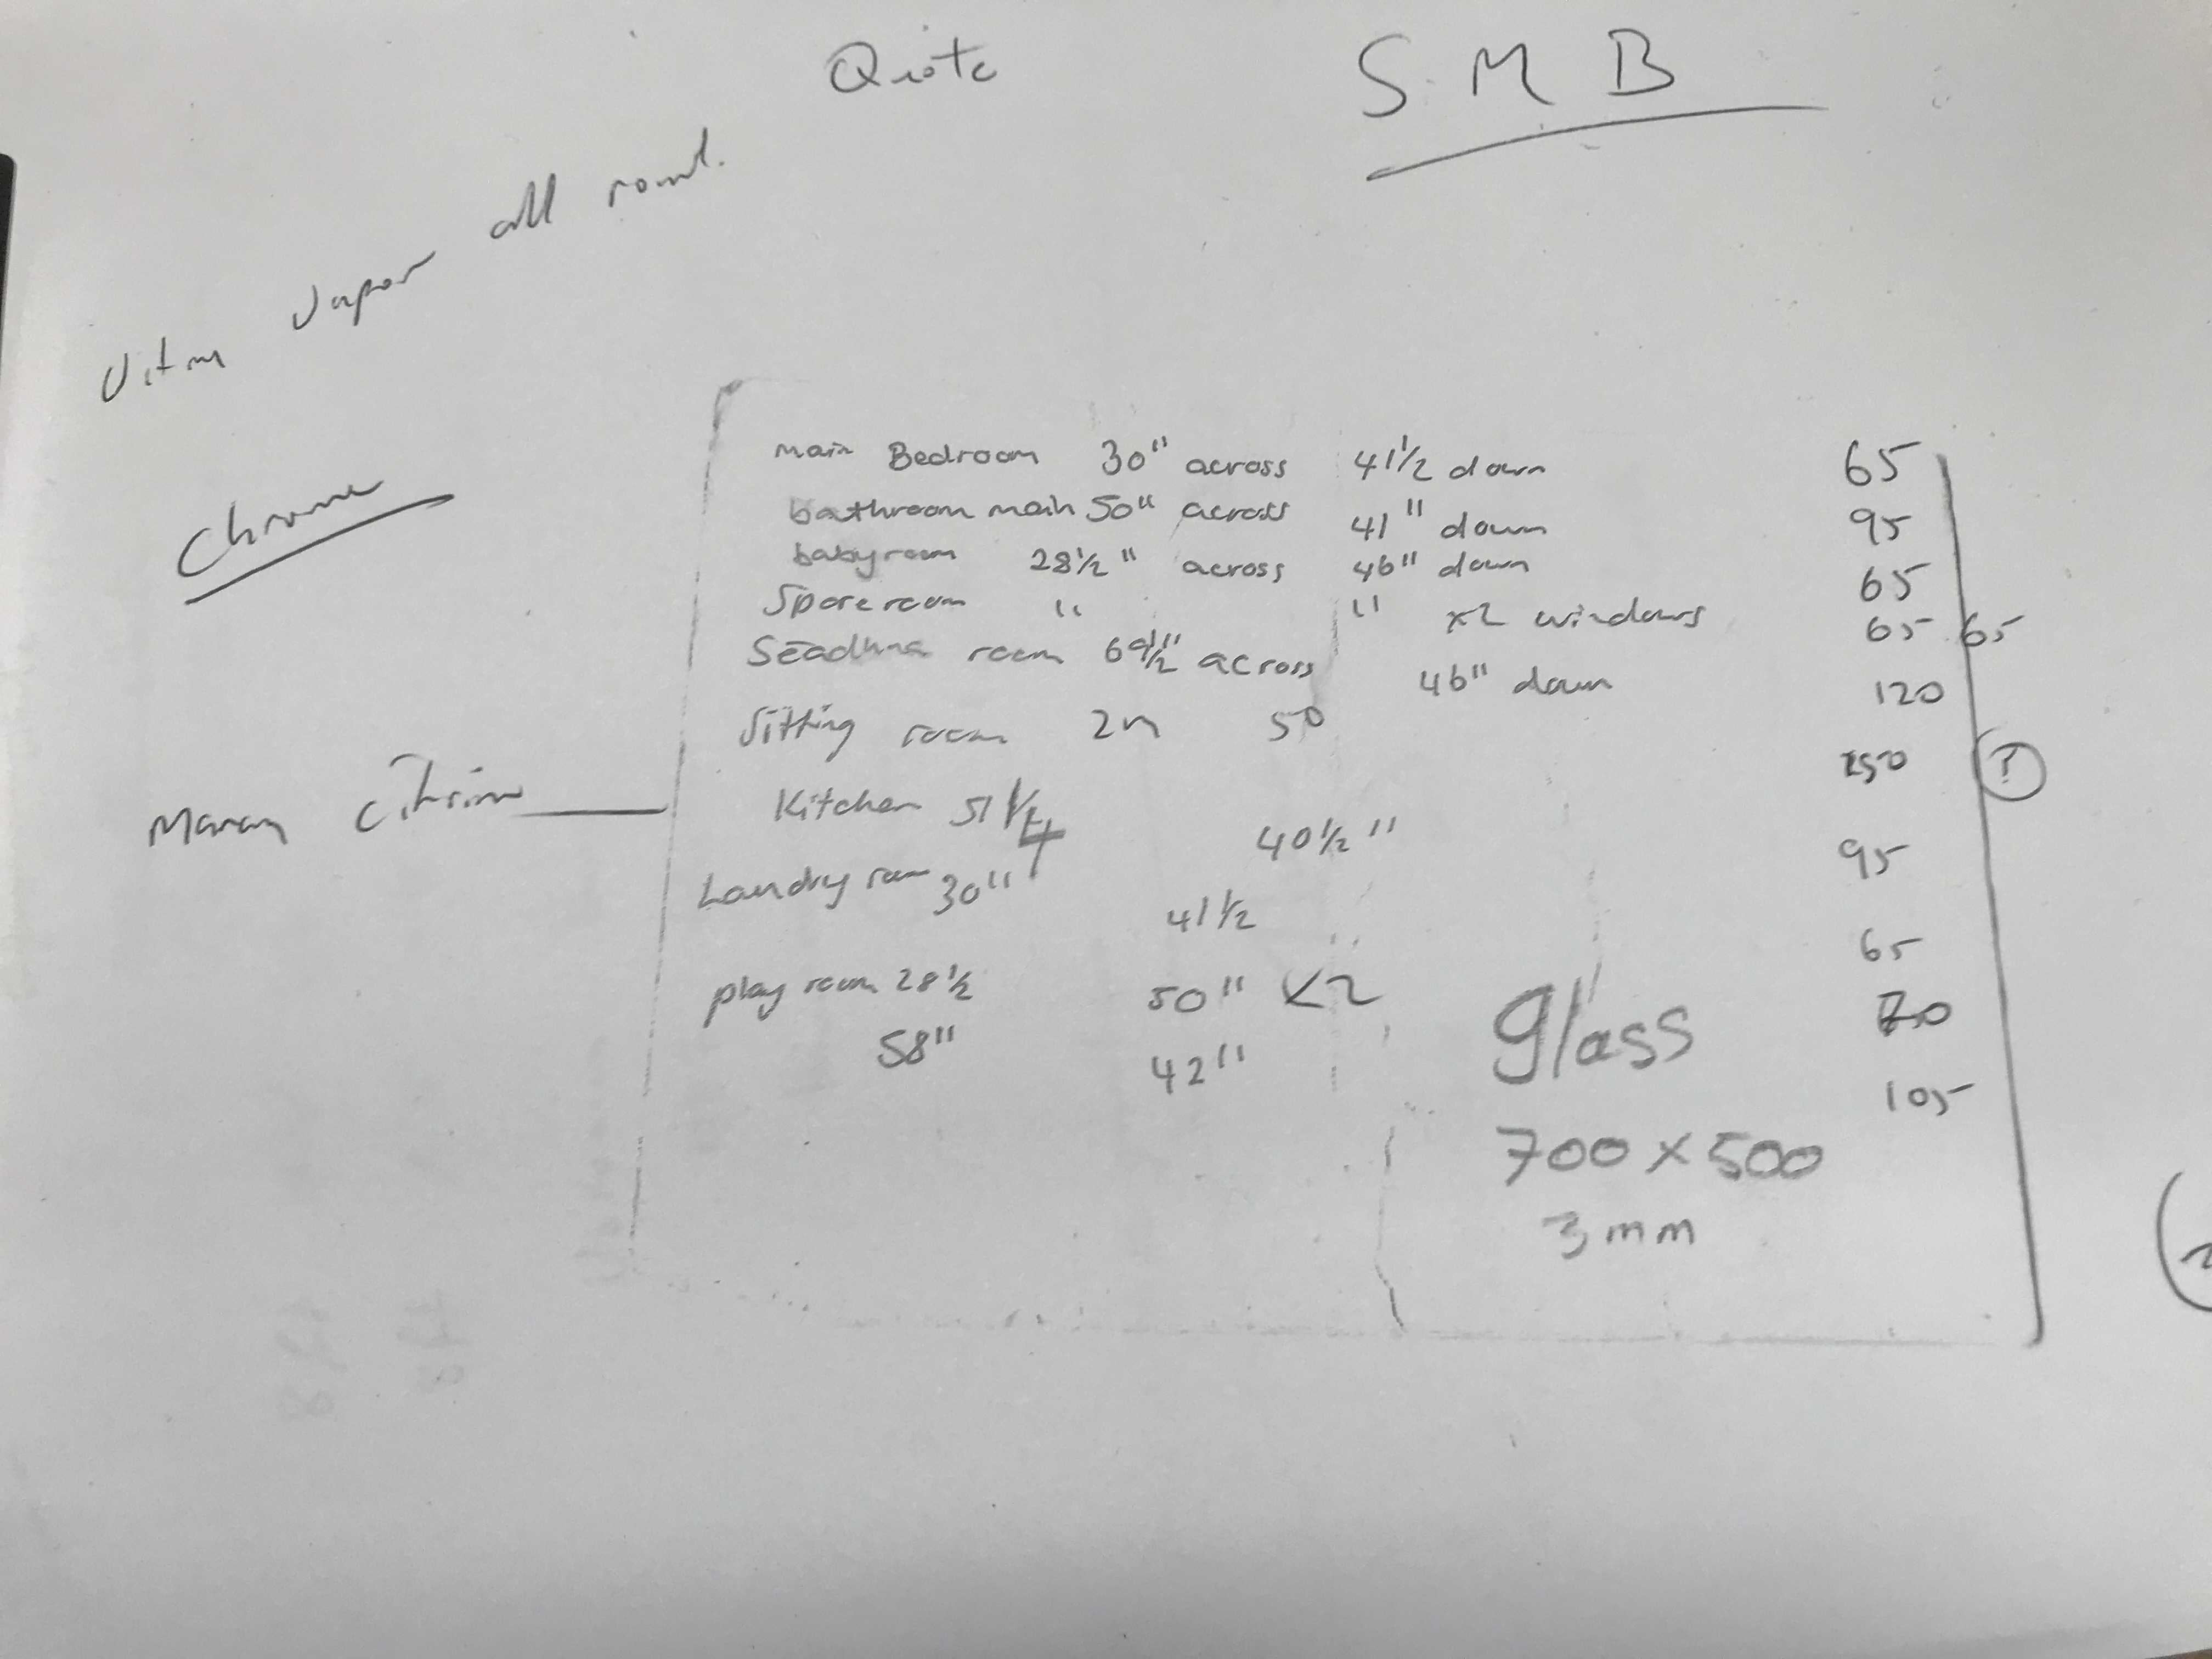 Quote
S M B
Vapor all round.
main Bedroom 30" across 41 1/2 down 65
bathroom main 50" across 41" down 95
babyroom 28 1/2" across 46" down 65
Spareroom " " x2 windows 65 65
room 69 1/2" across 46" down 120
Sitting room 2m 50 ?
Kitchen 51 1/4 40 1/2" 95
Chrome
Laundry room 30" 41 1/2 65
play room 28 1/2 50" x2 70
58" 42" 105
glass
700 x 500
3mm